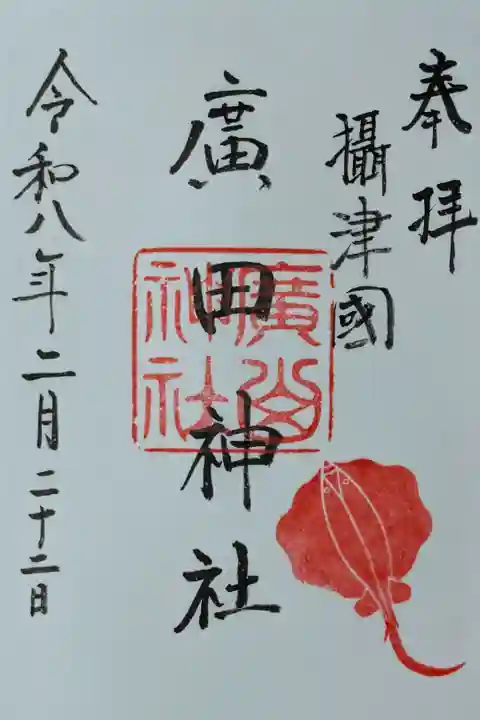 奉拝
攝津國
廣田神社
廣
神社
令和八年二月二十二日